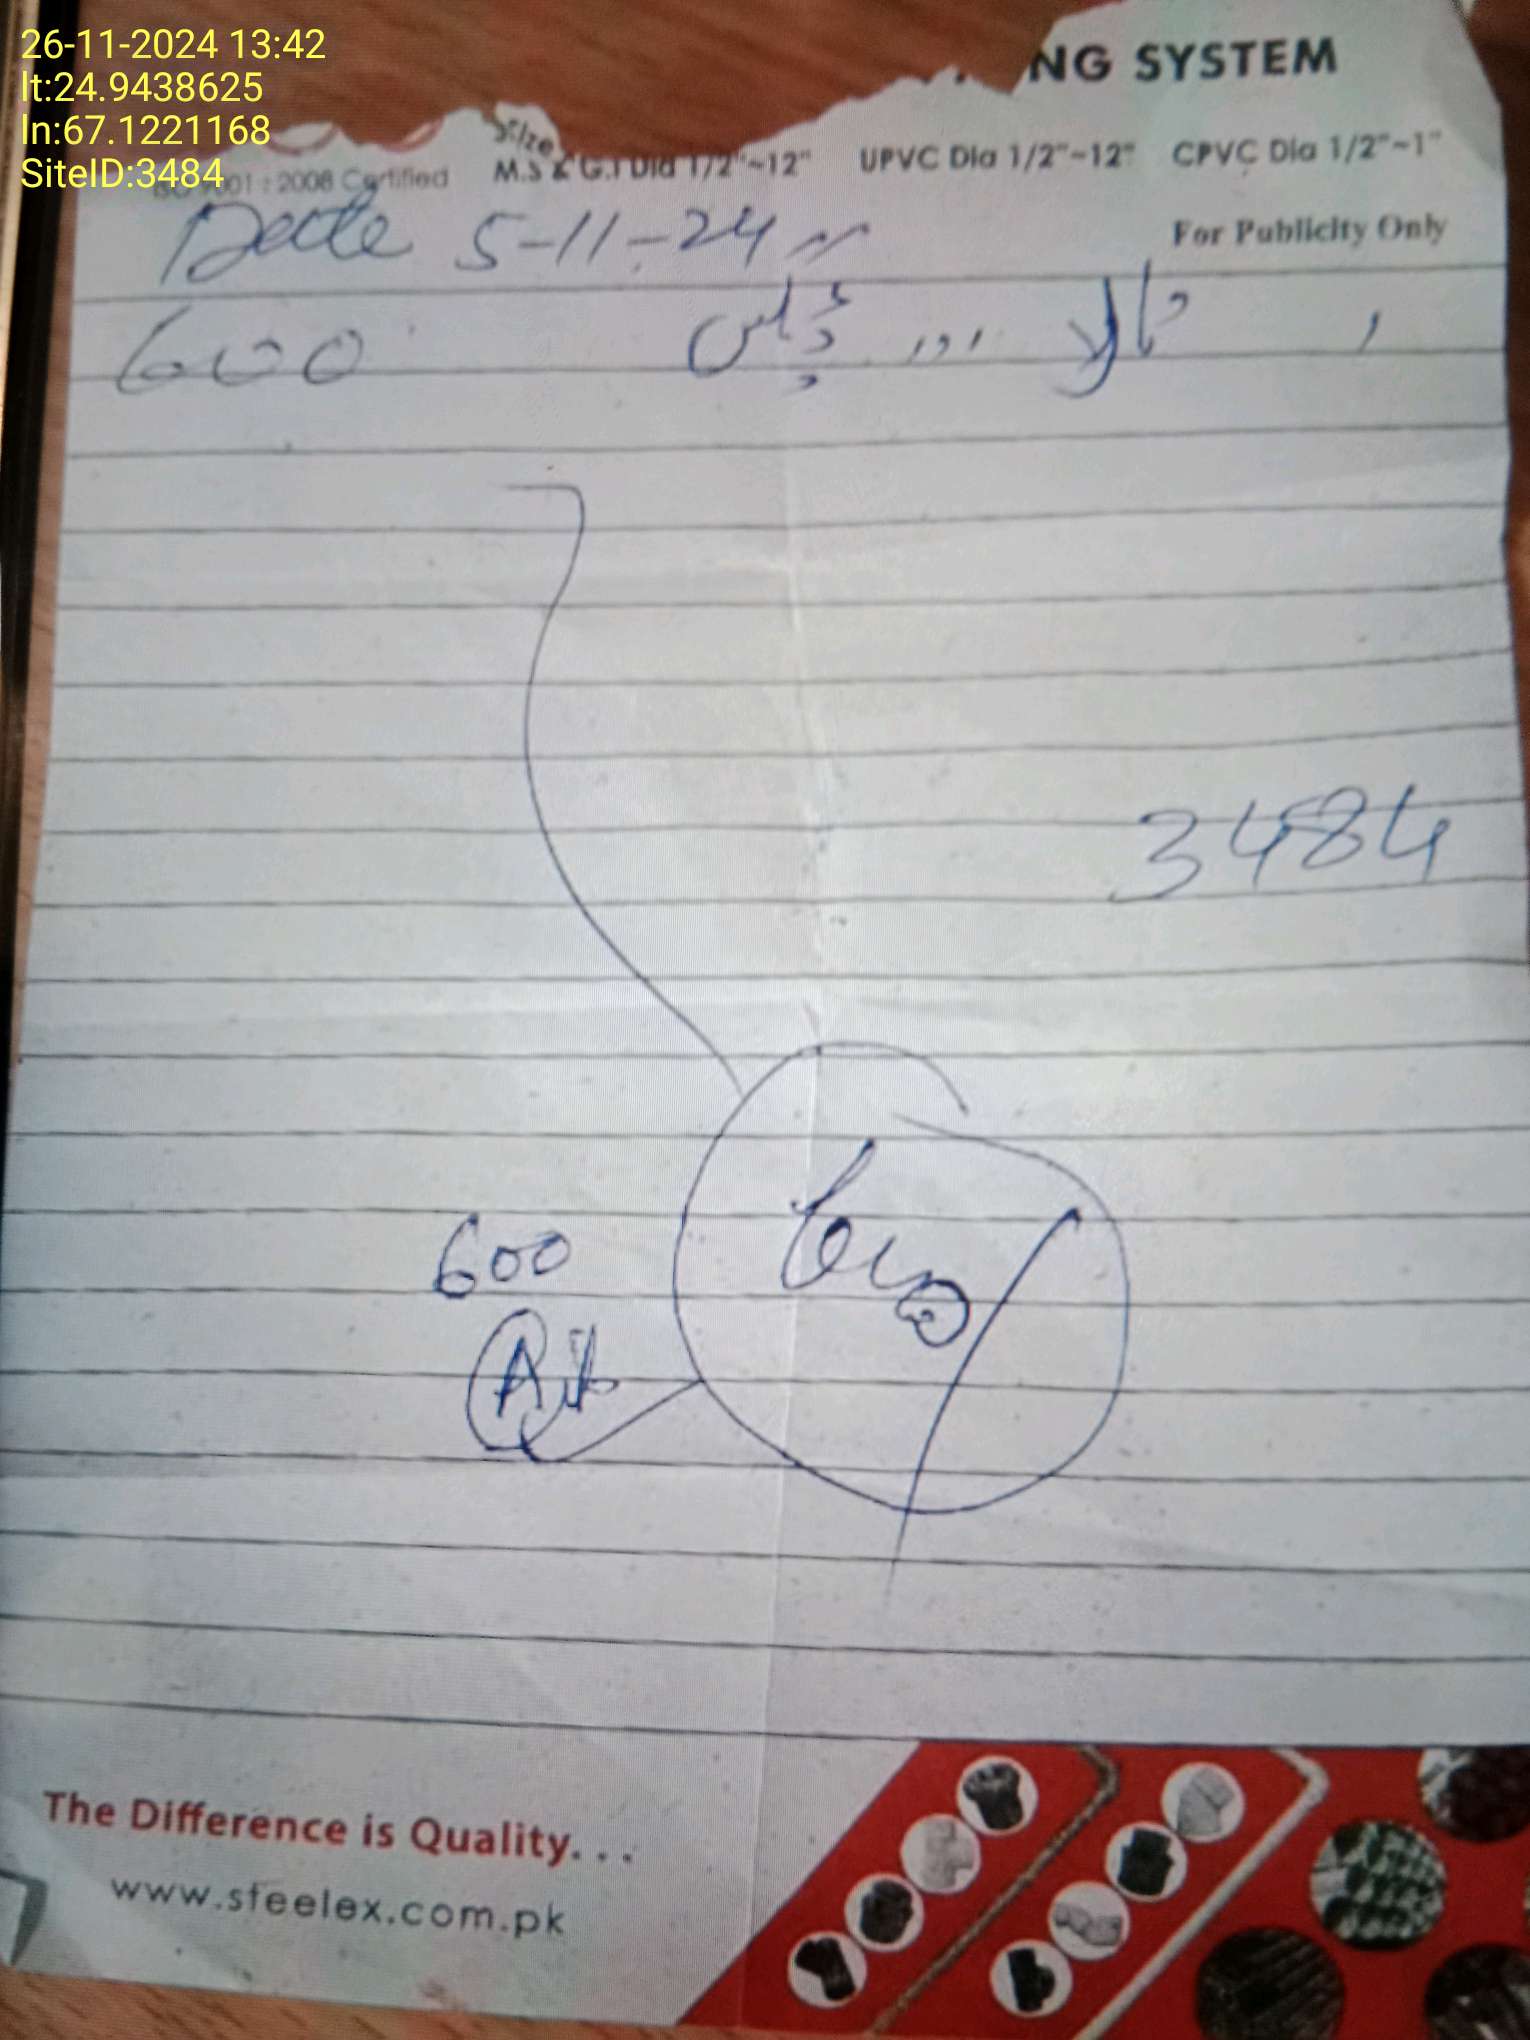 26-11-2024 13:42
lt:24.9438625
ln:67.1221168
SiteID:3484
NG SYSTEM
Size
M.S & G.I Dia 1/2"~12" UPVC Dia 1/2"~12" CPVC Dia 1/2"~1"
9001 : 2008 Certified
For Publicity Only
Date 5-11-24
600
3484
600
The Difference is Quality. . .
www.steelex.com.pk